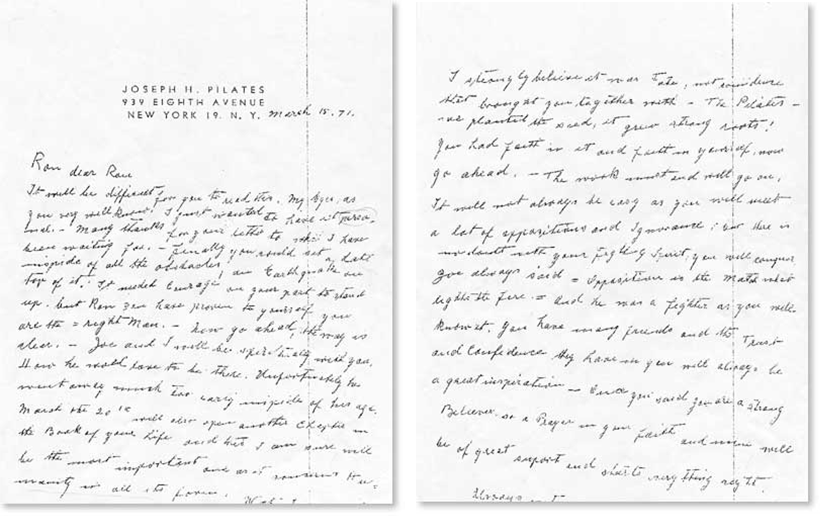 JOSEPH H. PILATES
939 EIGHTH AVENUE
NEW YORK 19. N. Y. March 15. 71.
Ron dear Ron
It will be difficult for you to read this. My Eyes, as
you very well know! I just wanted to have it perso-
nal. - Many thanks for your letter to which I have
been waiting for. - Finally you could set a date
inspide of all the obstacles, an Earthquake on
top of it! It needed courage on your part to stand
up. But Ron you have proven to yourself you
are the = right Man. - Now go ahead the way is
clear. - Joe and I will be spiritually with you.
How he would love to be there. Unfortunately he
went away much too early inspide of his age.
March the 20th will also open another Chapter in
the Book of your Life and this I am sure will
be the most important one as it concerns Hu-
manity in all its forms.
I strongly believe it was Fate, not coincidence
that brought you together with - The Pilates -
we planted the seed, it grew strong roots!
You had faith in it and faith in yourself, now
go ahead. - The work must and will go on,
It will not always be easy as you will meet
a lot of oppositions and Ignorance! But there is
no doubt with your fighting Spirit, you will conquer
Joe always said = Opposition is the Match which
lights the fire. = And he was a fighter as you well
know it. You have many friends and the Trust
and Confidence they have in you will always be
a great inspiration - Once you said you are a strong
Believer, so a Prayer in your faith and mine will
be of great support and starts everything right.
Always